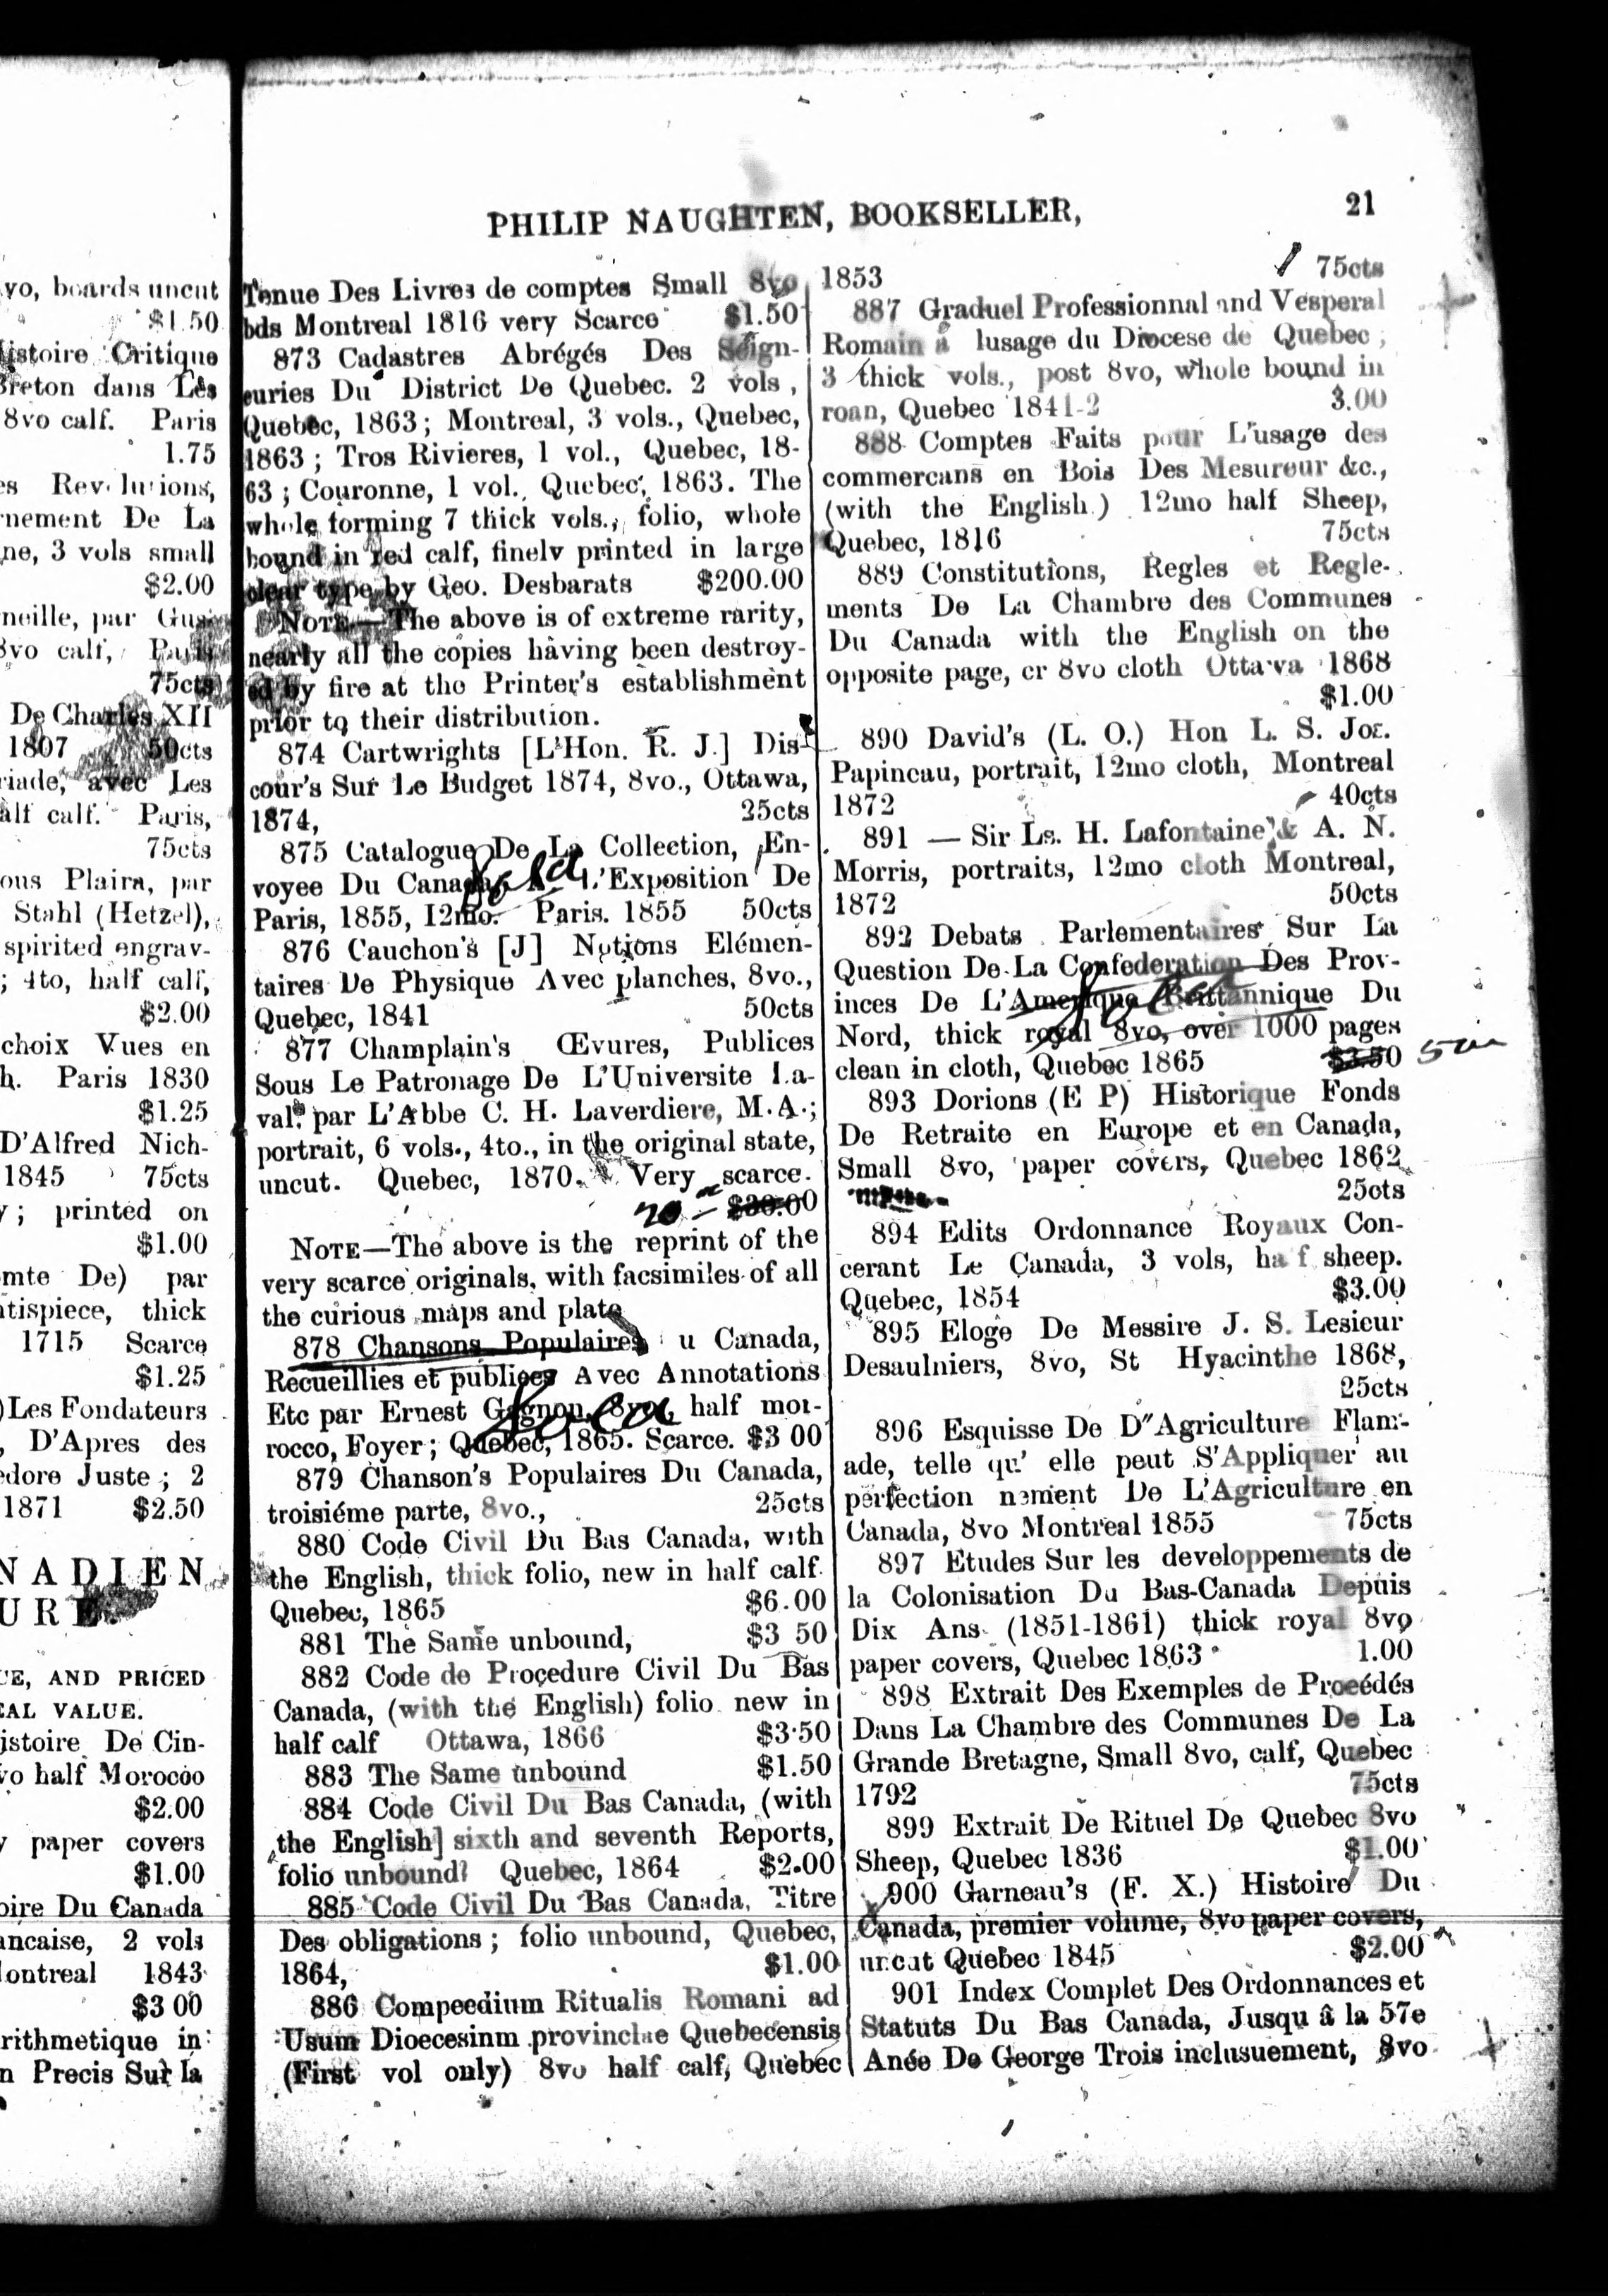 vo, boards uncut
$1.50
istoire Critique
Breton dans Les
8vo calf. Paris
1.75
es Rev lutions,
nement De La
ne, 3 vols small
$2.00
neille, par Gus
8vo calf, Paris
75cts
De Charles XII
1807 50cts
riade, avec Les
alf calf. Paris,
75cts
ous Plaira, par
Stahl (Hetzel),
spirited engrav-
; 4to, half calf,
$2.00
choix Vues en
h. Paris 1830
$1.25
D'Alfred Nich-
1845 75cts
y; printed on
$1.00
mte De) par
ntispiece, thick
1715 Scarce
$1.25
)Les Fondateurs
, D'Apres des
edore Juste; 2
1871 $2.50
NADIEN
URE.
CE, AND PRICED
EAL VALUE.
istoire De Cin-
vo half Morocoo
$2.00
y paper covers
$1.00
oire Du Canada
ancaise, 2 vols
Montreal 1843
$3 00
rithmetique in
n Precis Sur la
PHILIP NAUGHTEN, BOOKSELLER, 21
Tenue Des Livres de comptes Small 8vo
bds Montreal 1816 very Scarce $1.50
873 Cadastres Abrégés Des Seign-
euries Du District De Quebec. 2 vols,
Quebec, 1863; Montreal, 3 vols., Quebec,
1863; Tros Rivieres, 1 vol., Quebec, 18-
63; Couronne, 1 vol., Quebec, 1863. The
whole forming 7 thick vols., folio, whole
bound in red calf, finely printed in large
clear type by Geo. Desbarats $200.00
NOTE—The above is of extreme rarity,
nearly all the copies having been destroy-
ed by fire at the Printer's establishment
prior to their distribution.
874 Cartwrights [L'Hon. R. J.] Dis-
cour's Sur Le Budget 1874, 8vo., Ottawa,
1874, 25cts
875 Catalogue De La Collection, En-
voyee Du Canada A L'Exposition De
Paris, 1855, 12mo. Paris. 1855 50cts
Sold
876 Cauchon's [J] Notions Elémen-
taires De Physique Avec planches, 8vo.,
Quebec, 1841 50cts
877 Champlain's Œvures, Publices
Sous Le Patronage De L'Universite La-
val. par L'Abbe C. H. Laverdiere, M.A.;
portrait, 6 vols., 4to., in the original state,
uncut. Quebec, 1870. Very scarce.
20 – $30.00
NOTE—The above is the reprint of the
very scarce originals, with facsimiles of all
the curious maps and plate
878 Chansons Populaires u Canada,
Recueillies et publiees Avec Annotations
Etc par Ernest Gagnon, 8vo, half mor-
rocco, Foyer; Quebec, 1865. Scarce. $3 00
Sold
879 Chanson's Populaires Du Canada,
troisiéme parte, 8vo., 25cts
880 Code Civil Du Bas Canada, with
the English, thick folio, new in half calf
Quebec, 1865 $6.00
881 The Same unbound, $3 50
882 Code de Proçedure Civil Du Bas
Canada, (with the English) folio new in
half calf Ottawa, 1866 $3.50
883 The Same unbound $1.50
884 Code Civil Du Bas Canada, (with
the English] sixth and seventh Reports,
folio unbound? Quebec, 1864 $2.00
885 Code Civil Du Bas Canada, Titre
Des obligations; folio unbound, Quebec,
1864, $1.00
886 Compeedium Ritualis Romani ad
Usum Dioecesinm provinclae Quebecensis
(First vol only) 8vo half calf, Quebec
1853 75cts
887 Graduel Professionnal and Vesperal
Romain á lusage du Diocese de Quebec;
3 thick vols., post 8vo, whole bound in
roan, Quebec 1841-2 3.00
888 Comptes Faits pour L'usage des
commercans en Bois Des Mesureur &c.,
(with the English.) 12mo half Sheep,
Quebec, 1816 75cts
889 Constitutions, Regles et Regle-
ments De La Chambre des Communes
Du Canada with the English on the
opposite page, cr 8vo cloth Ottawa 1868
$1.00
890 David's (L. O.) Hon L. S. Jos.
Papineau, portrait, 12mo cloth, Montreal
1872 40cts
891 — Sir Ls. H. Lafontaine & A. N.
Morris, portraits, 12mo cloth Montreal,
1872 50cts
892 Debats Parlementaires Sur La
Question De La Confederation Des Prov-
inces De L'Amerique Brittannique Du
Nord, thick royal 8vo, over 1000 pages
clean in cloth, Quebec 1865 $3.50
Sold
893 Dorions (E P) Historique Fonds
De Retraite en Europe et en Canada,
Small 8vo, paper covers, Quebec 1862
25cts
894 Edits Ordonnance Royaux Con-
cerant Le Canada, 3 vols, ha f sheep.
Quebec, 1854 $3.00
895 Eloge De Messire J. S. Lesieur
Desaulniers, 8vo, St Hyacinthe 1868,
25cts
896 Esquisse De D"Agriculture Flam-
ade, telle qu' elle peut S'Appliquer au
perfection nement De L'Agriculture en
Canada, 8vo Montreal 1855 75cts
897 Etudes Sur les developpements de
la Colonisation Du Bas-Canada Depuis
Dix Ans (1851-1861) thick royal 8vo
paper covers, Quebec 1863 1.00
898 Extrait Des Exemples de Proeédés
Dans La Chambre des Communes De La
Grande Bretagne, Small 8vo, calf, Quebec
1792 75cts
899 Extrait De Rituel De Quebec 8vo
Sheep, Quebec 1836 $1.00
900 Garneau's (F. X.) Histoire Du
Canada, premier volume, 8vo paper covers,
uncut Quebec 1845 $2.00
901 Index Complet Des Ordonnances et
Statuts Du Bas Canada, Jusqu â la 57e
Anée De George Trois inclusuement, 8vo